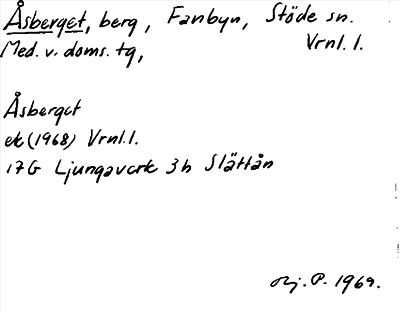 Åsberget, berg, Fanbyn, Stöde sn.
Med. v. doms. tg, Vrnl. l.
Åsberget
ek (1968) Vrnl. l.
17G Ljungaverk 3h Slättån
P. 1969.